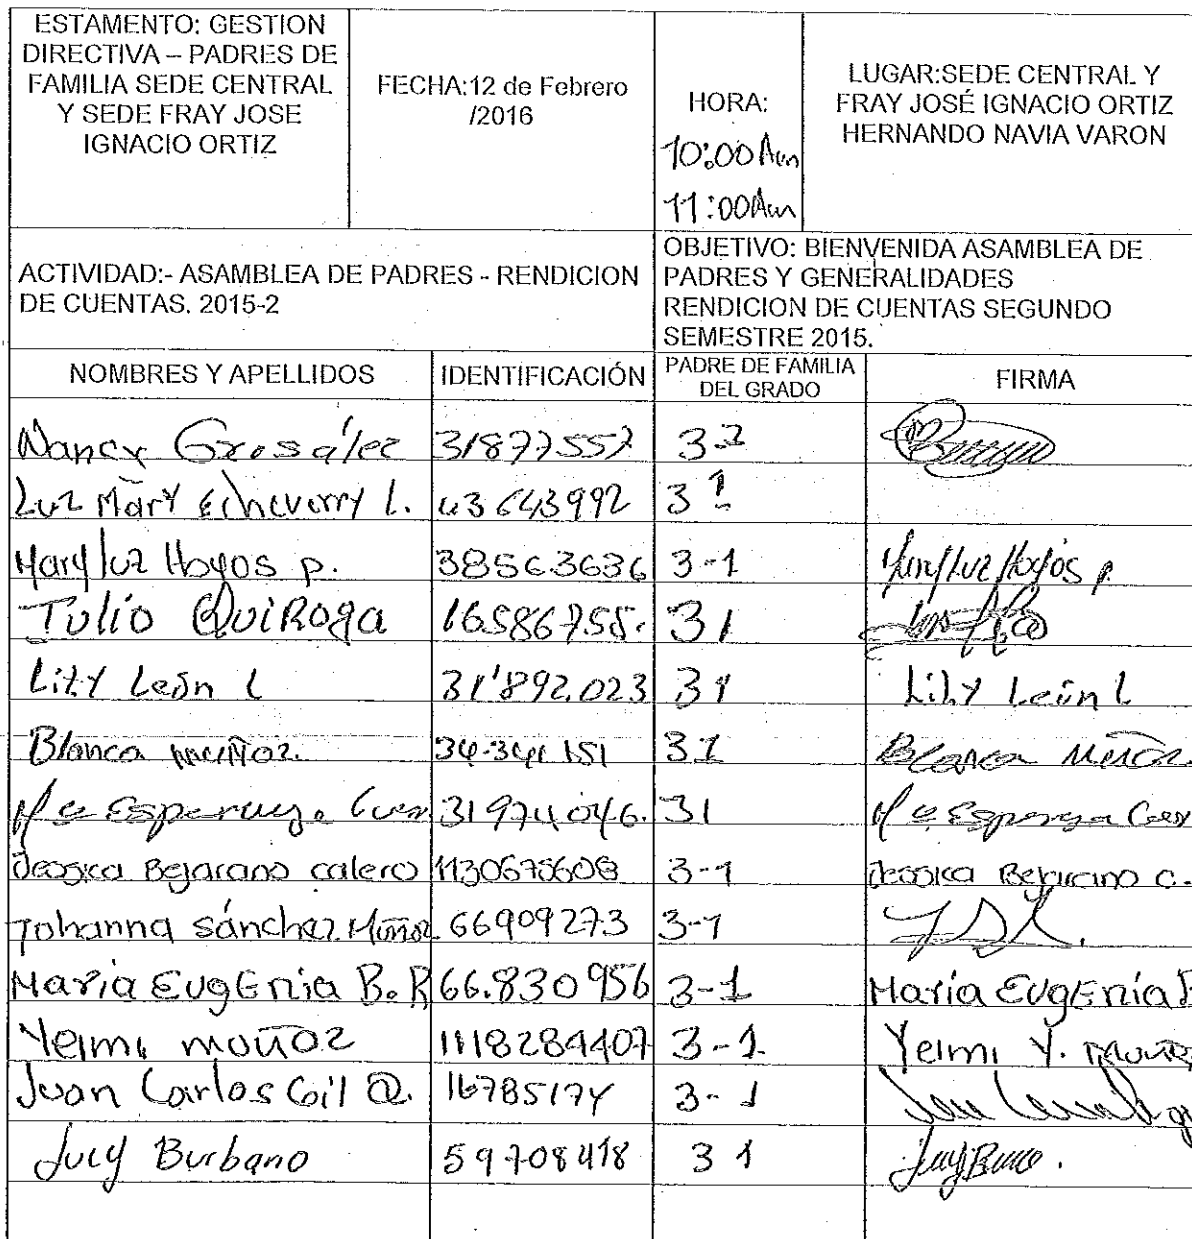 ESTAMENTO: GESTION
DIRECTIVA – PADRES DE
FAMILIA SEDE CENTRAL
Y SEDE FRAY JOSE
IGNACIO ORTIZ
FECHA:12 de Febrero
/2016
HORA:
10:00 Am
11:00 Am
LUGAR:SEDE CENTRAL Y
FRAY JOSÉ IGNACIO ORTIZ
HERNANDO NAVIA VARON
ACTIVIDAD:- ASAMBLEA DE PADRES - RENDICION
DE CUENTAS. 2015-2
OBJETIVO: BIENVENIDA ASAMBLEA DE
PADRES Y GENERALIDADES
RENDICION DE CUENTAS SEGUNDO
SEMESTRE 2015.
NOMBRES Y APELLIDOS IDENTIFICACIÓN PADRE DE FAMILIA DEL GRADO FIRMA
Nancy 31877557
Luz Mary Echeverry L. 43643992 3
Mary luz Hoyos p. 38563636 3-1 Mary Luz Hoyos p.
Tulio QuiRoga 16.586755. 31
Lily León L 31'892.023 31 Lily León L
Blanca muÑoz. 31 Blanca Muñoz.
Esperanza 31974046. 31 Esperanza
Jessica Bejarano calero 3-1 Jessica Bejarano c.
Johanna sánchez Muñoz 66909273 3-1
Maria EugEnia B. R 66.830956 3-1 Maria EugEnia
Yeimi muñoz 1118284407 3-1 Yeimi Y. muñoz
Juan Carlos Gil Q. 16785174 3-1
Lucy Burbano 59708418 31